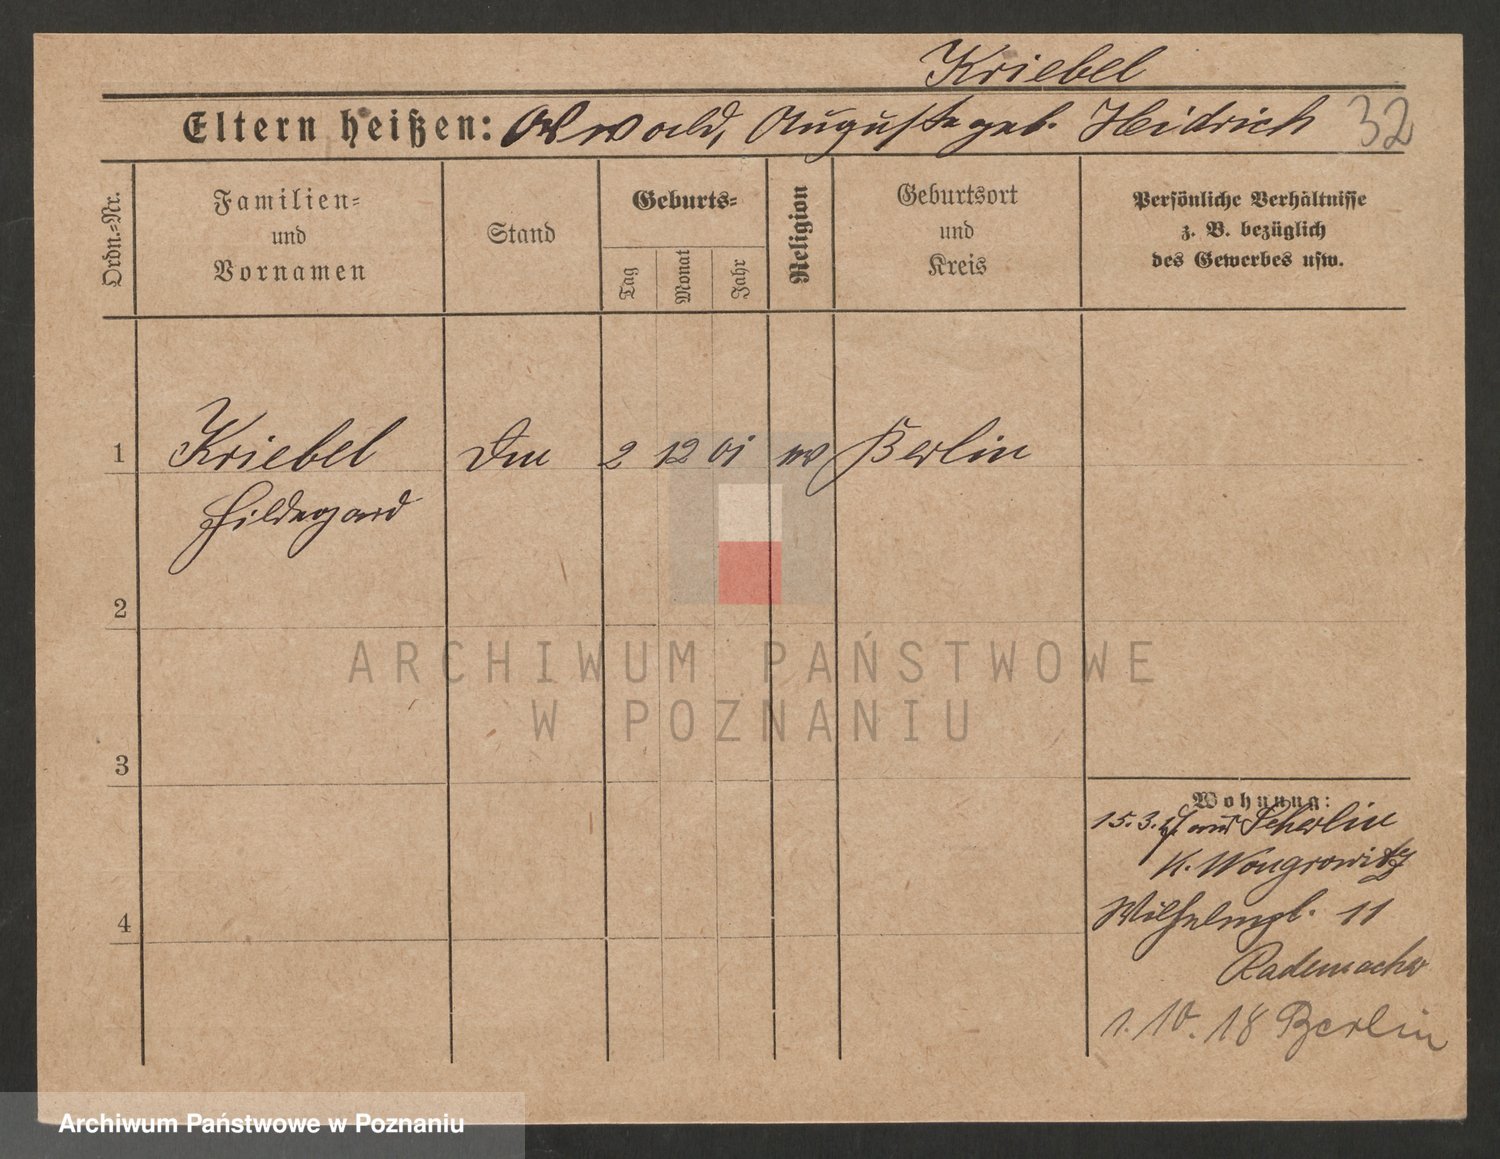 Kriebel
Eltern heißen: Oswald, Auguste geb. Heidrich 32
Ordn.-Nr.
Familien-
und
Vornamen
Stand
Geburts-
Tag
Monat
Jahr
Religion
Geburtsort
und
Kreis
Persönliche Verhältnisse
z. B. bezüglich
des Gewerbes usw.
1 Kriebel 2 12 01 Berlin
Hildegard
2
3
4
ARCHIWUM PAŃSTWOWE
W POZNANIU
Wohnung:
15.3.17 aus
K. Wongrowitz
11
Rademacher
1. 10. 18 Berlin
Archiwum Państwowe w Poznaniu